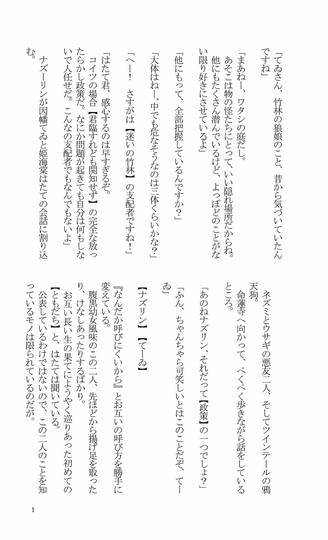 「てゐさん、竹林の狼娘のこと、昔から気づいていたん
ですね」
「まあねー、ワタシの庭だし。
あそこは物の怪たちにとって、いい隠れ場所だからね。
他にもたくさん潜んでいるけど、よっぽどのことがな
い限り好きにさせているよ」
「他にもって、全部把握しているんですか？」
「大体はねー、中でも危なそうなのは三体くらいかな？」
「へー！　さすがは【迷いの竹林】の支配者ですね！」
「はたて君、感心するのは早すぎるぞ。
コイツの場合【君臨すれども関知せず】の完全な放っ
たらかし政策だ。なにか問題が起きても自分は何もしな
いで人任せだ。こんなの支配者でもなんでもないよ」
ナズーリンが因幡てゐと姫海棠はたての会話に割り込
む。
「あのねナズリン、それだって【政策】の一つでしょ？」
「ふん、ちゃんちゃら可笑しいとはこのことだぞ、てー
ゐ」
【ナズリン】【てーゐ】
『なんだか呼びにくいから』とお互いの呼び方を勝手に
変えている。
腹黒幼女風味のこの二人、先ほどから揚げ足を取った
り、けなしあったりするばかり。
お互い長い生の果てにようやく巡りあった初めての
【ともだち】と、はたては聞いている。
公表しているわけではないので、この二人のことを知
っているモノは限られているのだが。
ネズミとウサギの悪友二人、そしてツインテールの鴉
天狗。
命蓮寺へ向かって、ぺくぺく歩きながら話をしている
ところ。
1